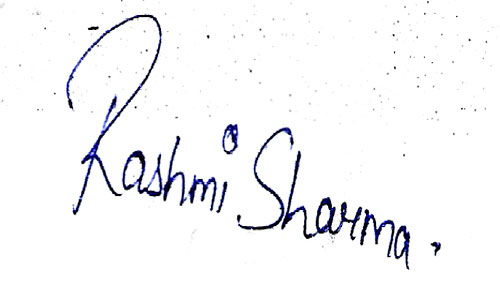 Rashmi Sharma.